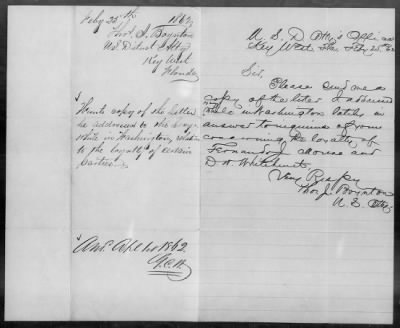 Feby 25th 1862
Thos. J. Boynton
U.S. District Atty
Key West
Florida
Wants copy of the letter
he addressed to the
while in Washington relative
to the loyalty of certain
parties.
Ans. Apl 1st 1862
U. S. D Atty's Office
Key West Fla Feby 25th 62
Sir,
Please send me a
copy of the letter I addressed
while in Washington lately in
answer to inquiries of yours
concerning the loyalty of
Fernando J. and
D. W. Whitehurst
Very Respy
Thos. J. Boynton
U. S. Atty